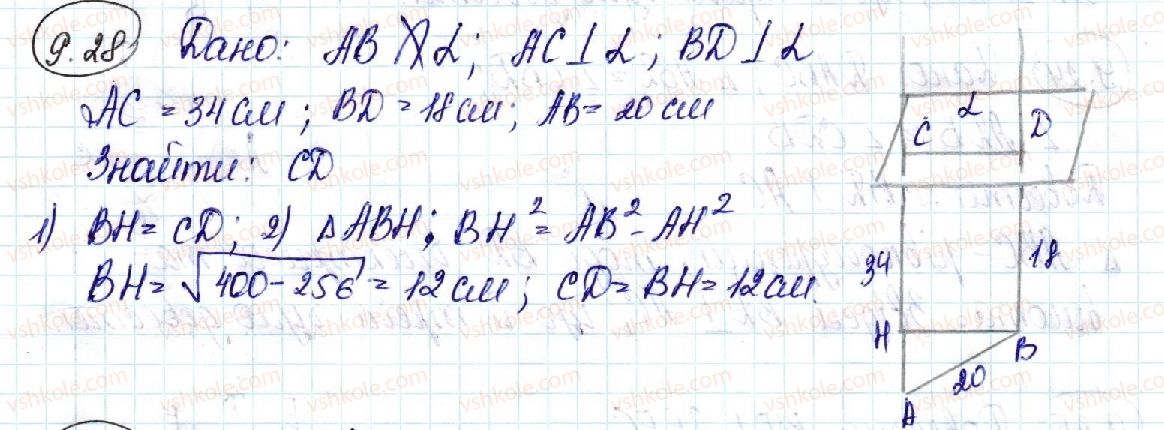 9.28 Дано: AB ∦ α; AC ⊥ α; BD ⊥ α
AC = 34 см; BD = 18 см; AB = 20 см
Знайти: CD
1) BH = CD; 2) △ABH; BH² = AB² - AH²
BH = √400 - 256 = 12 см; CD = BH = 12 см.
α
C D
34 18
H B
20
A